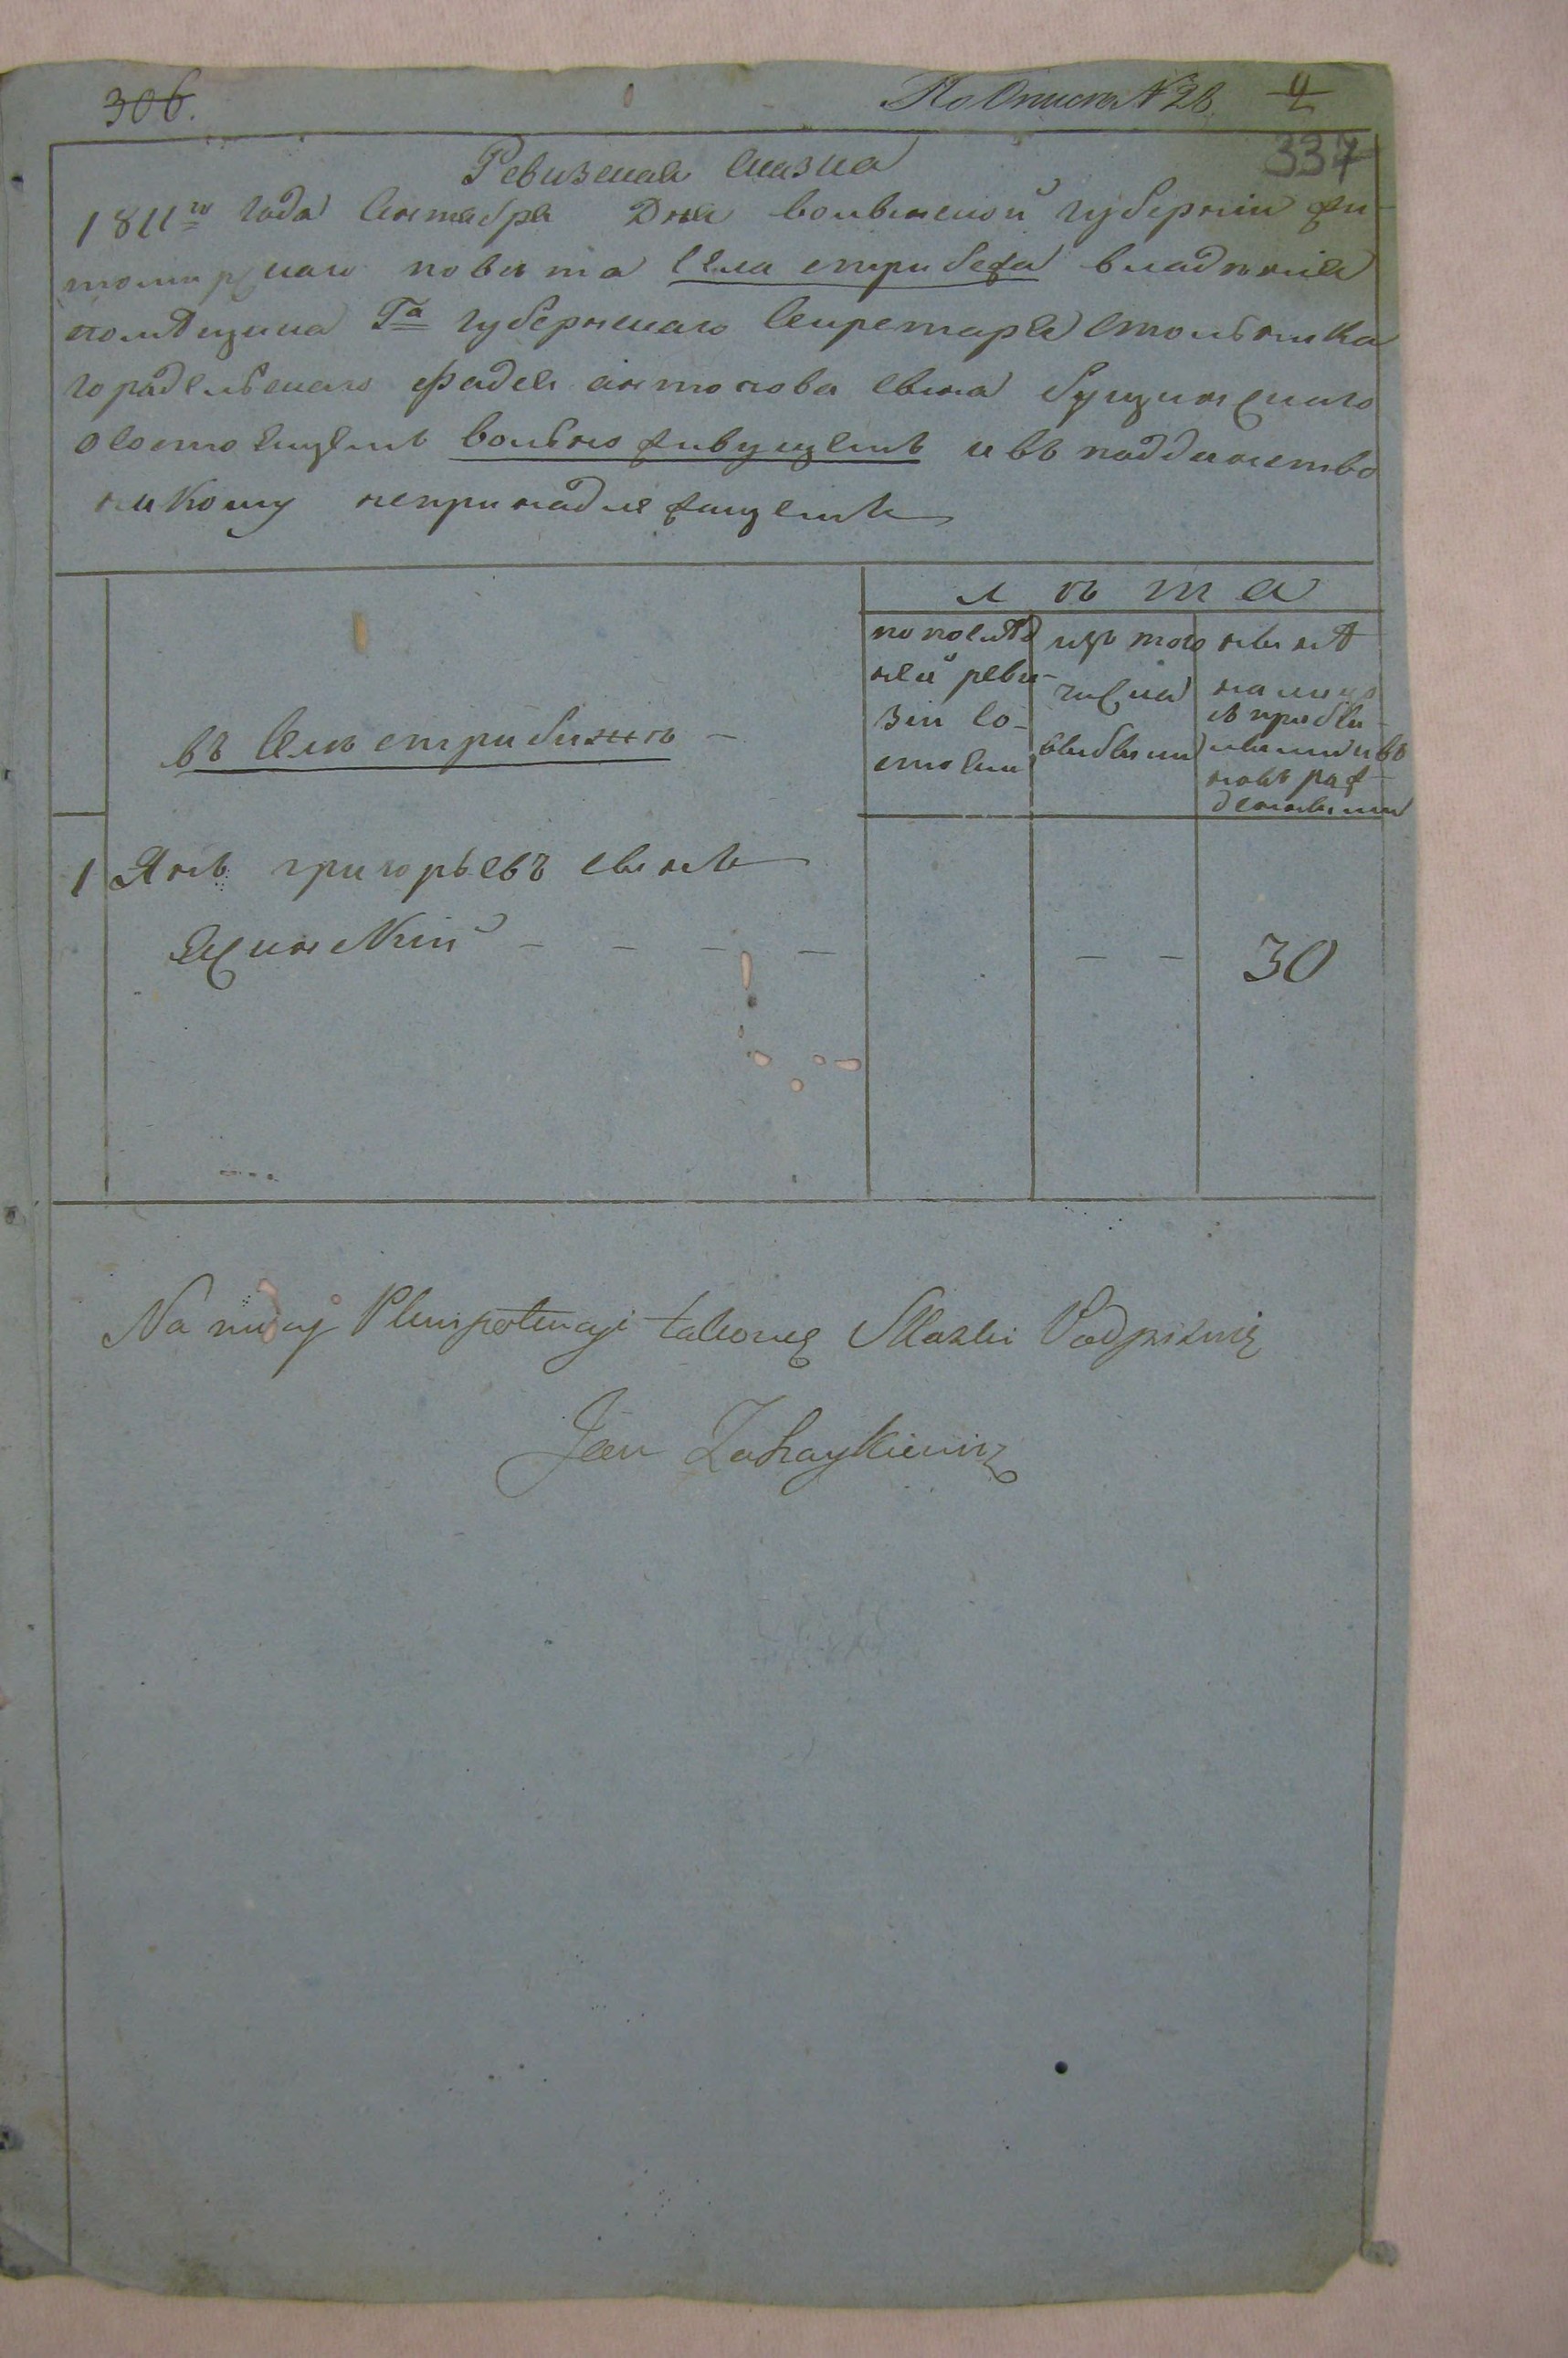 306.
По Описи № 26 4
337
Ревизская сказка
1811го года Сентября Дня волынской губернии жи-
томирскаго повета села стрибежа владенія
помѣщика Гна губернскаго секретаря столника
городельскаго Фадея антонова сына бущинскаго
о состоящемъ вольно живущемъ и въ подданство
никому непринадлежащемъ
лѣта
по послѣд
ней реви-
зіи со-
стояли
изъ того
числа
выбыли
нынѣ
на лицо
съ прибы-
лыми и въ
новь рож-
денными
въ селѣ стрибижѣ -
1 Янъ григорьевъ сынъ
Ясинскій - - - - - - 30
Na mocy Plenipotencyi takowe Skazki Podpisuię
Jan Zahaykiewicz